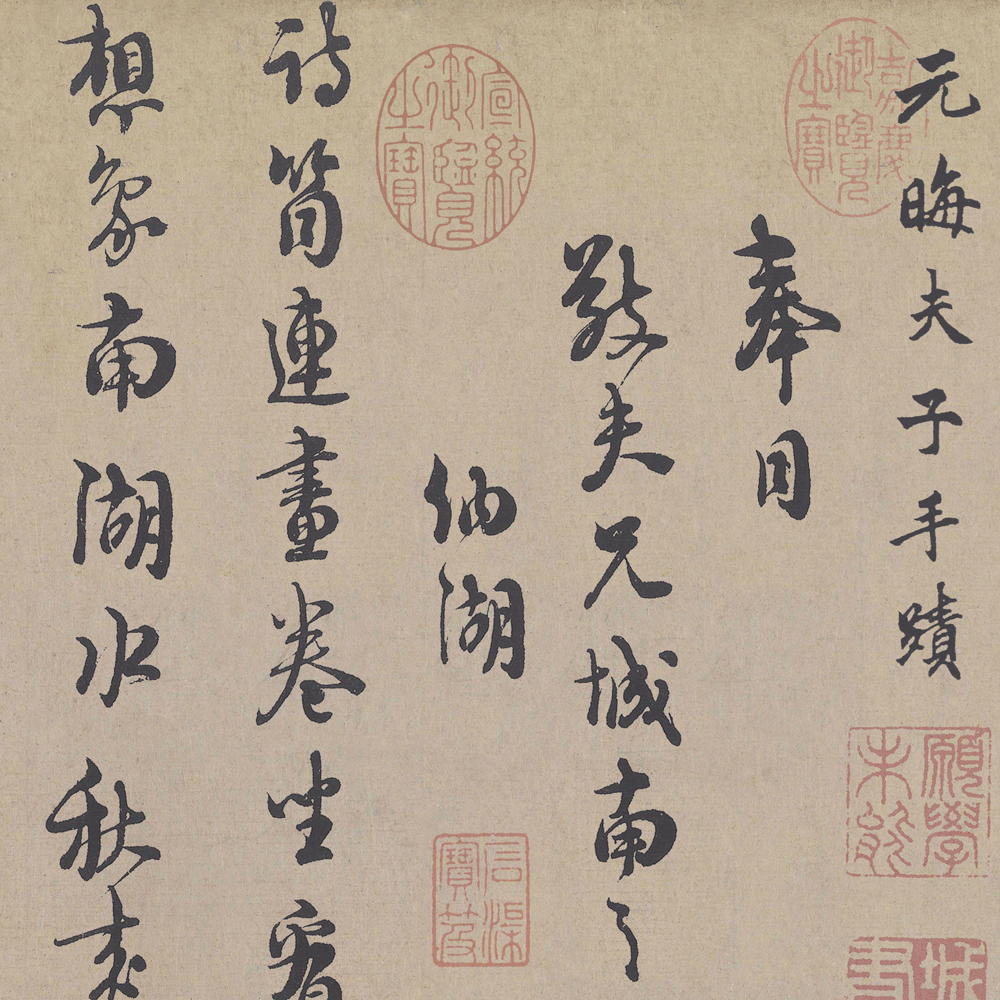 嘉慶御覽之寶
元晦夫子手蹟
願學未能
奉同
敬夫兄城南之
宣統御覽之寶
納湖
詩筒連畫卷坐看
想象南湖水秋來